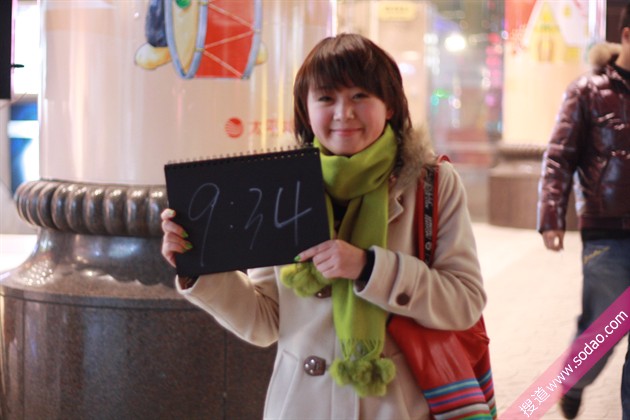 9:34
搜道 www.sodao.com